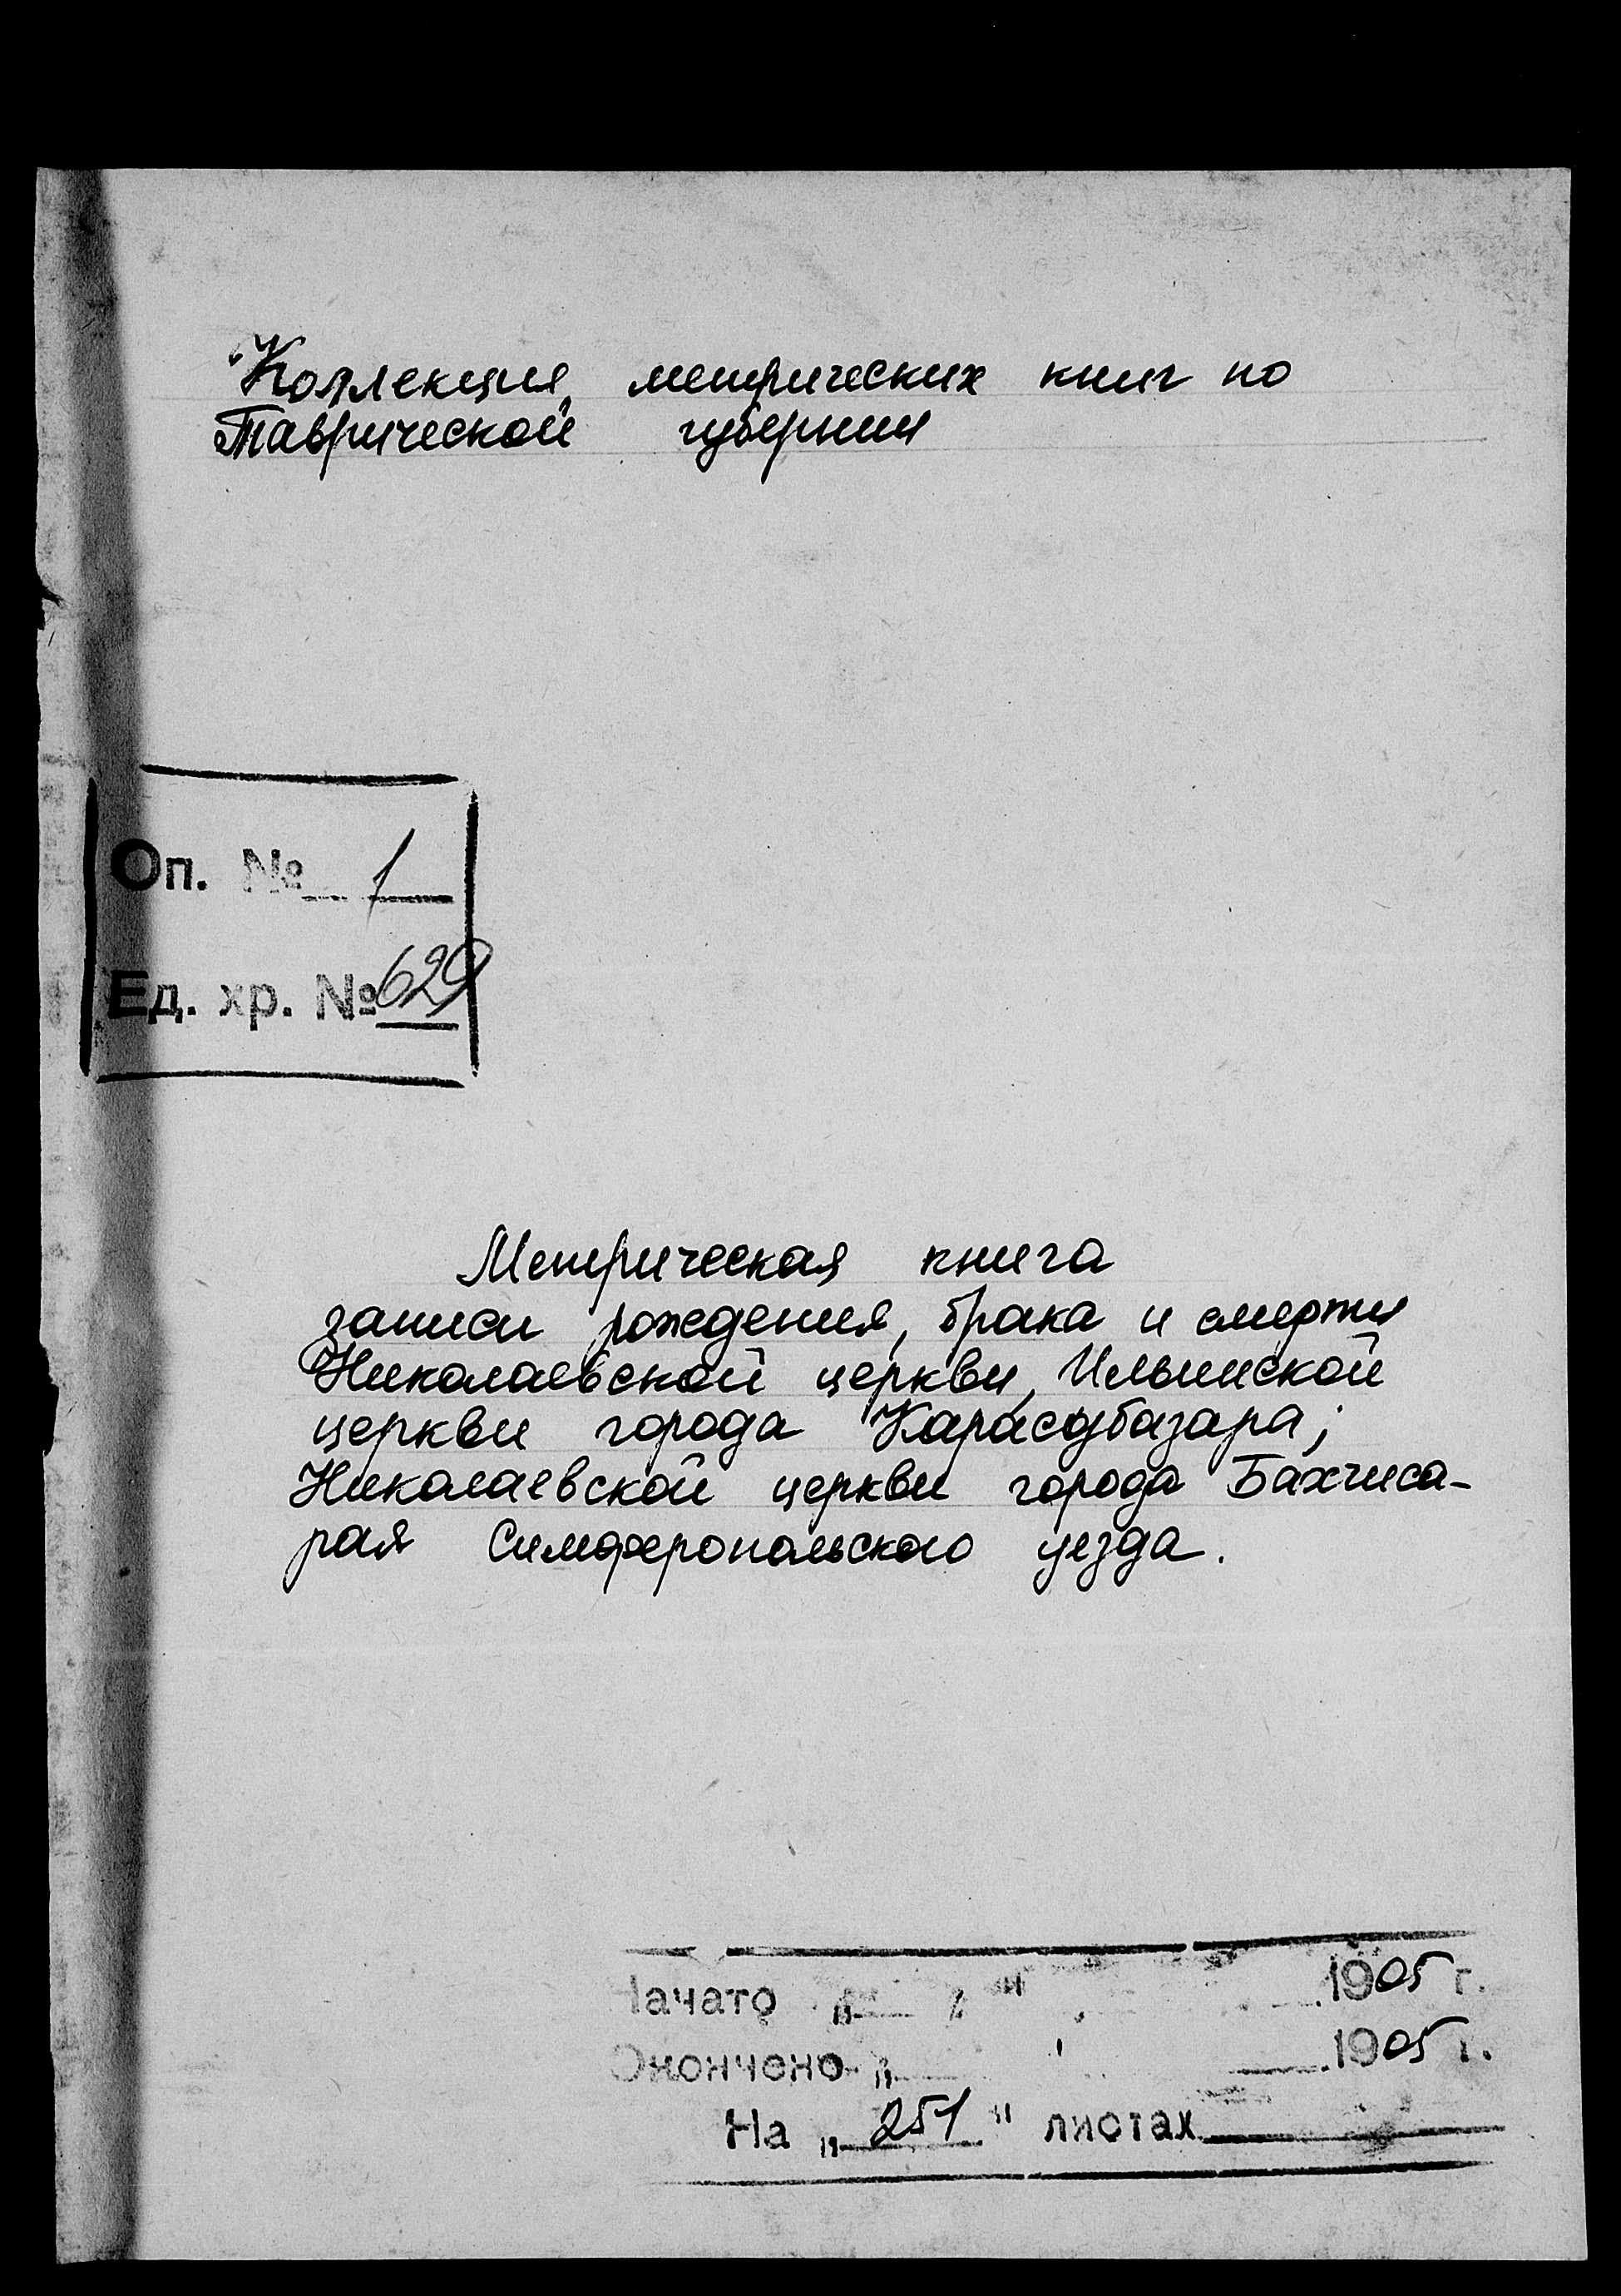 Коллекция метрических книг по
Таврической губернии
Оп. № 1
Ед. хр. № 629
Метрическая книга
записи рождения, брака и смерти
Николаевской церкви, Ильинской
церкви города Карасубазара;
Николаевской церкви города Бахчиса-
рая Симферопольского уезда.
Начато „ " 1905 г.
Окончено „ 1905 г.
На „ 251 " листах